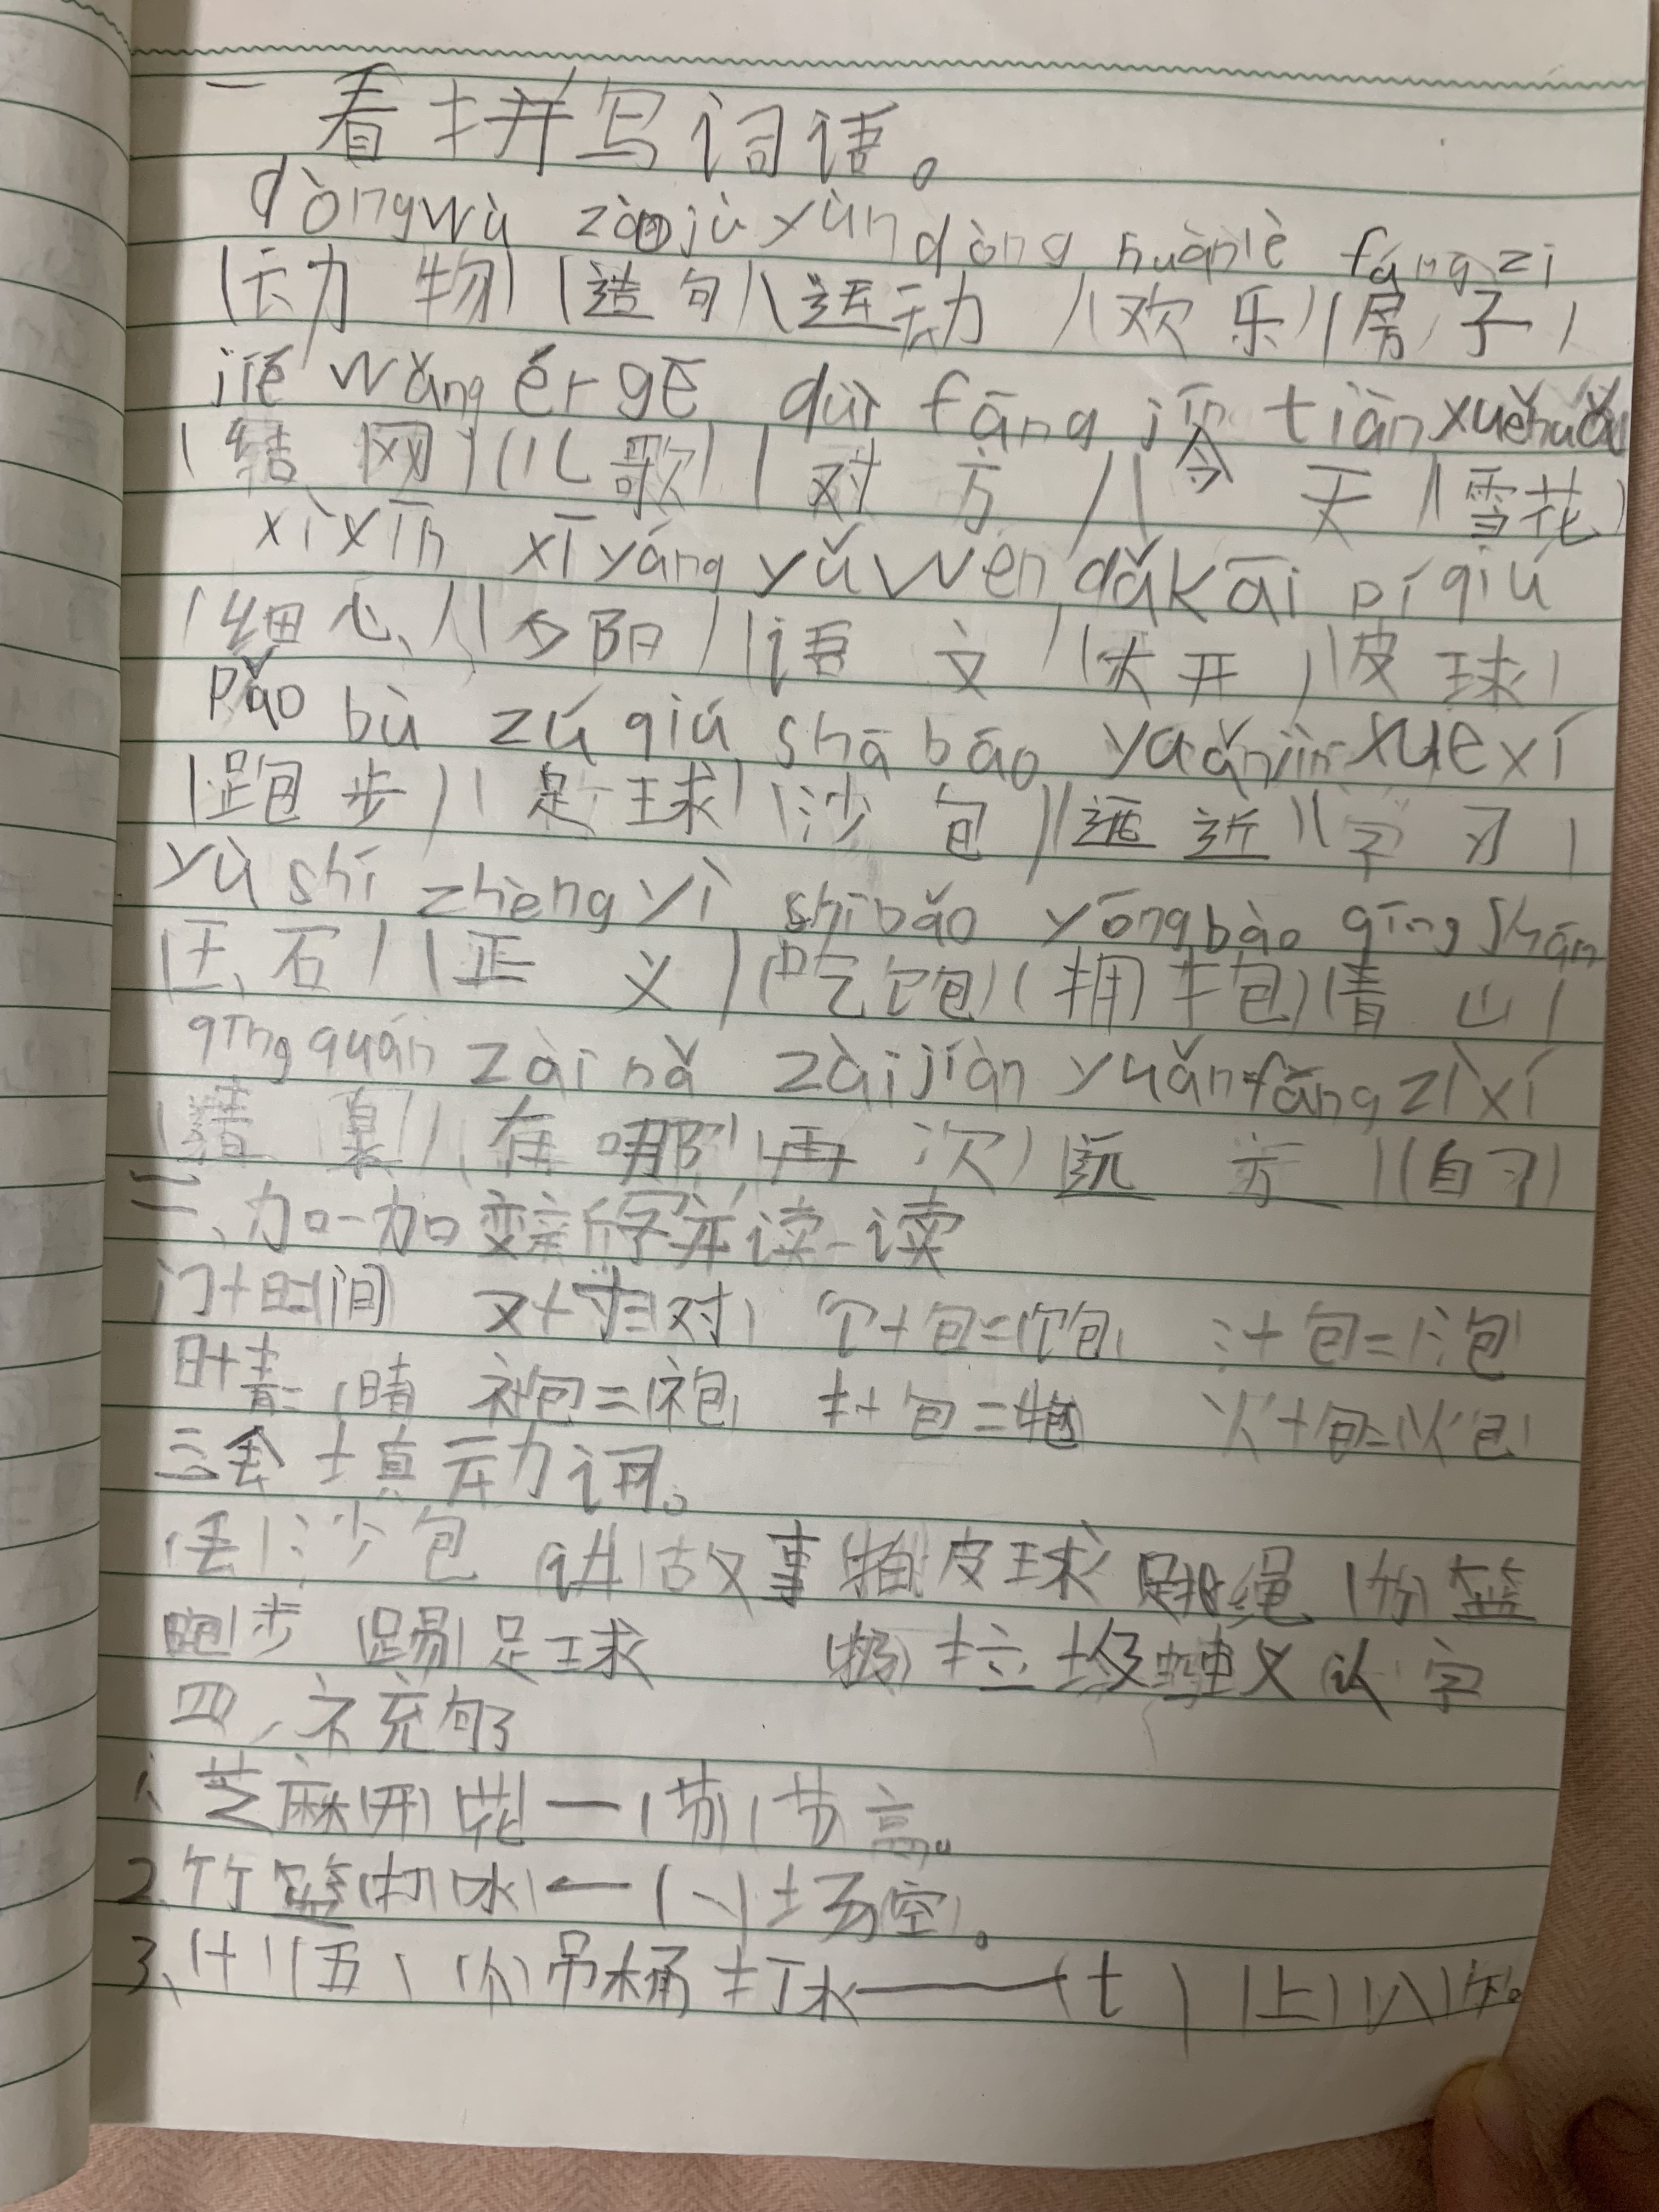 一看拼写词语。
dòngwù zàojù yùndòng huānlè fángzi
(动物)(造句)(运动)(欢乐)(房子)
jié wǎng ér gē duì fāng jīn tiān xuěhuā
(结网)(儿歌)(对方)(今天)(雪花)
xìxīn xīyáng yǔwén dǎkāi píqiú
(细心)(夕阳)(语文)(大开)(皮球)
pǎo bù zú qiú shā bāo yuǎnjìn xuéxí
(跑步)(足球)(沙包)(远近)(学习)
yùshí zhèngyì chībǎo yōngbào qīngshān
(玉石)(正义)(吃饱)(拥抱)(青山)
qīngquán zàinǎ zàijiàn yuǎnfāng zìxí
(在哪)(再次)(远方)(自习)
二、加一加变新字并读一读
门+日=(间) 又+寸=(对) 饣+包=(饱) 氵+包=(泡)
日+青=(晴) 衤包=(袍) 扌+包=抱 火+包=(炮)
三会填动词。
(丢)沙包 (讲)故事(拍)皮球 跳绳 篮
跑步 (踢)足球 (扔)垃圾 (认)字
四、补充句子
1、芝麻(开)(花)一(节)(节)高。
2、竹篮(打)(水)一(一)场(空)。
3、(十)(五)(个)吊桶打水——(七)(上)(八)(下)。